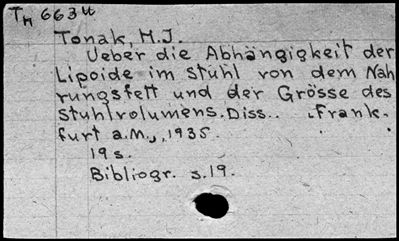 TM 663u
Tonak, M.J.
Ueber die Abhängigkeit der
Lipoide im Stuhl von dem Nah
rungsfett und der Grösse des
Stuhlvolumens. Diss.. Frank.
furt a.M., 1935.
19 s.
Bibliogr. s.19.